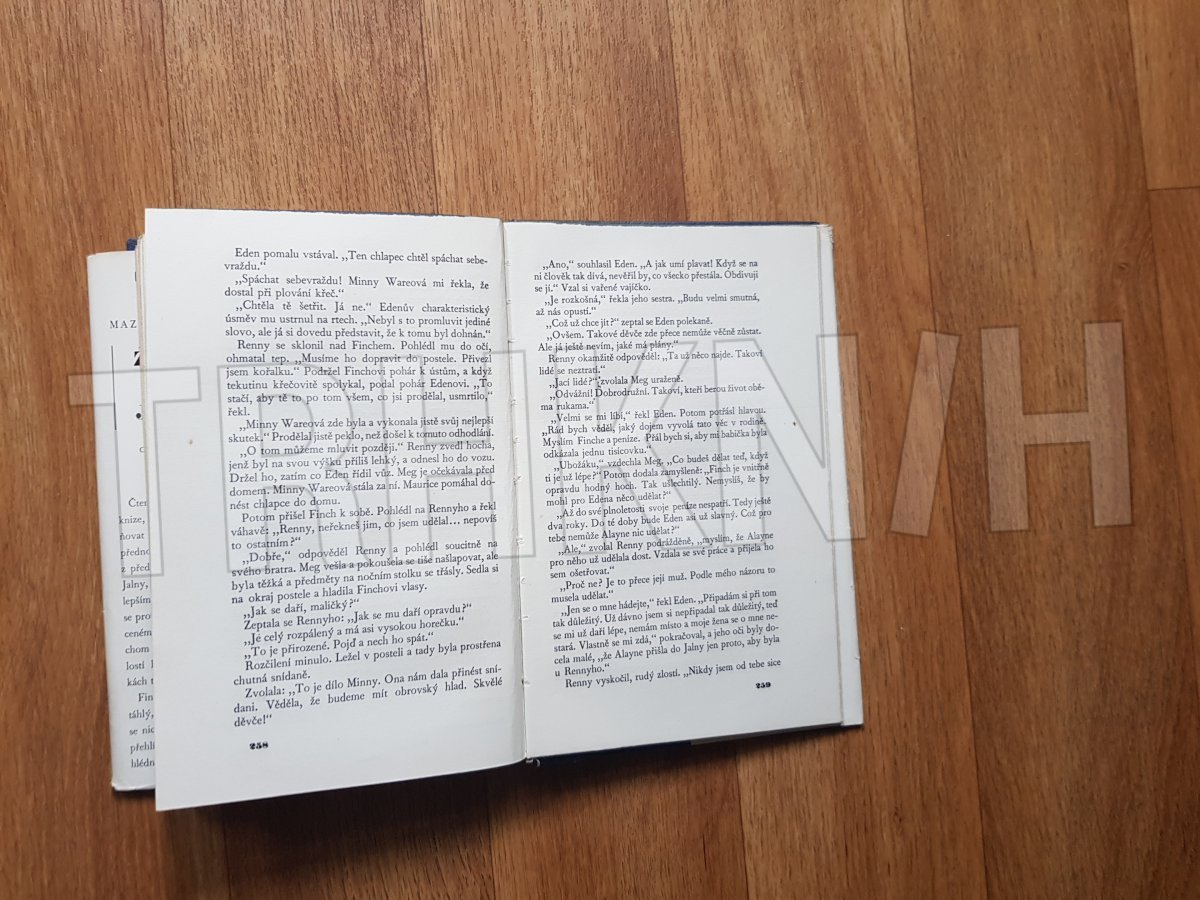 MAZ
Z
Čten
knize,
ňovat
předno
z před
Jalny,
lepším
se pro
ceném
chom
losti l
kách t
Fin
táhlý,
se nic
přehlí
hlédn
Eden pomalu vstával. „Ten chlapec chtěl spáchat sebe-
vraždu.“
„Spáchat sebevraždu! Minny Wareová mi řekla, že
dostal při plování křeč.“
„Chtěla tě šetřit. Já ne.“ Edenův charakteristický
úsměv mu ustrnul na rtech. „Nebyl s to promluvit jediné
slovo, ale já si dovedu představit, že k tomu byl dohnán.“
Renny se sklonil nad Finchem. Pohlédl mu do očí,
ohmatal tep. „Musíme ho dopravit do postele. Přivezl
jsem kořalku.“ Podržel Finchovi pohár k ústům, a když
tekutinu křečovitě spolykal, podal pohár Edenovi. „To
stačí, aby tě to po tom všem, co jsi prodělal, usmrtilo,“
řekl.
„Minny Wareová zde byla a vykonala jistě svůj nejlepší
skutek.“ Prodělal jistě peklo, než došel k tomuto odhodlání.
„O tom můžeme mluvit později.“ Renny zvedl hocha,
jenž byl na svou výšku příliš lehký, a odnesl ho do vozu.
Držel ho, zatím co Eden řídil vůz. Meg je očekávala před
domem. Minny Wareová stála za ní. Maurice pomáhal do-
nést chlapce do domu.
Potom přišel Finch k sobě. Pohlédl na Rennyho a řekl
váhavě: „Renny, neřekneš jim, co jsem udělal... nepovíš
to ostatním?“
„Dobře,“ odpověděl Renny a pohlédl soucitně na
svého bratra. Meg vešla a pokoušela se tiše našlapovat, ale
byla těžká a předměty na nočním stolku se třásly. Sedla si
na okraj postele a hladila Finchovi vlasy.
„Jak se daří, maličký?“
Zeptala se Rennyho: „Jak se mu daří opravdu?“
„Jé celý rozpálený a má asi vysokou horečku.“
„To je přirozené. Pojď a nech ho spát.“
Rozčilení minulo. Ležel v posteli a tady byla prostřena
chutná snídaně.
Zvolala: „To je dílo Minny. Ona nám dala přinést sní-
dani. Věděla, že budeme mít obrovský hlad. Skvělé
děvče!“
258
„Ano,“ souhlasil Eden. „A jak umí plavat! Když se na
ni člověk tak dívá, nevěřil by, co všecko přestála. Obdivuji
se jí.“ Vzal si vařené vajíčko.
„Je rozkošná,“ řekla jeho sestra. „Budu velmi smutná,
až nás opustí.“
„Což už chce jít?“ zeptal se Eden polekaně.
„Ovšem. Takové děvče zde přece nemůže věčně zůstat.
Ale já ještě nevím, jaké má plány.“
Renny okamžitě odpověděl: „Ta už něco najde. Takoví
lidé se neztratí.“
„Jací lidé?“ zvolala Meg uraženě.
„Odvážní! Dobrodružní. Takoví, kteří berou život obě-
ma rukama.“
„Velmi se mi líbí,“ řekl Eden. Potom potřásl hlavou.
„Rád bych věděl, jaký dojem vyvolá tato věc v rodině.
Myslím Finche a peníze. Přál bych si, aby mi babička byla
odkázala jednu tisícovku.“
„Ubožáku,“ vzdechla Meg. „Co budeš dělat teď, když
ti je už lépe?“ Potom dodala zamyšleně: „Finch je vnitřně
opravdu hodný hoch. Tak ušlechtilý. Nemyslíš, že by
mohl pro Edena něco udělat?“
„Až do své plnoletosti svoje peníze nespatří. Tedy ještě
dva roky. Do té doby bude Eden asi už slavný. Což pro
tebe nemůže Alayne nic udělat?“
„Ale,“ zvolal Renny podrážděně, „myslím, že Alayne
pro něho už udělala dost. Vzdala se své práce a přijela ho
sem ošetřovat.“
„Proč ne? Je to přece její muž. Podle mého názoru to
musela udělat.“
„Jen se o mne hádejte,“ řekl Eden. „Připadám si při tom
tak důležitý. Už dávno jsem si nepřipadal tak důležitý, teď
se mi už daří lépe, nemám místo a moje žena se o mne ne-
stará. Vlastně se mi zdá,“ pokračoval, a jeho oči byly do-
cela malé, „že Alayne přišla do Jalny jen proto, aby byla
u Rennyho.“
Renny vyskočil, rudý zlostí. „Nikdy jsem od tebe sice
259
TRHKNIH